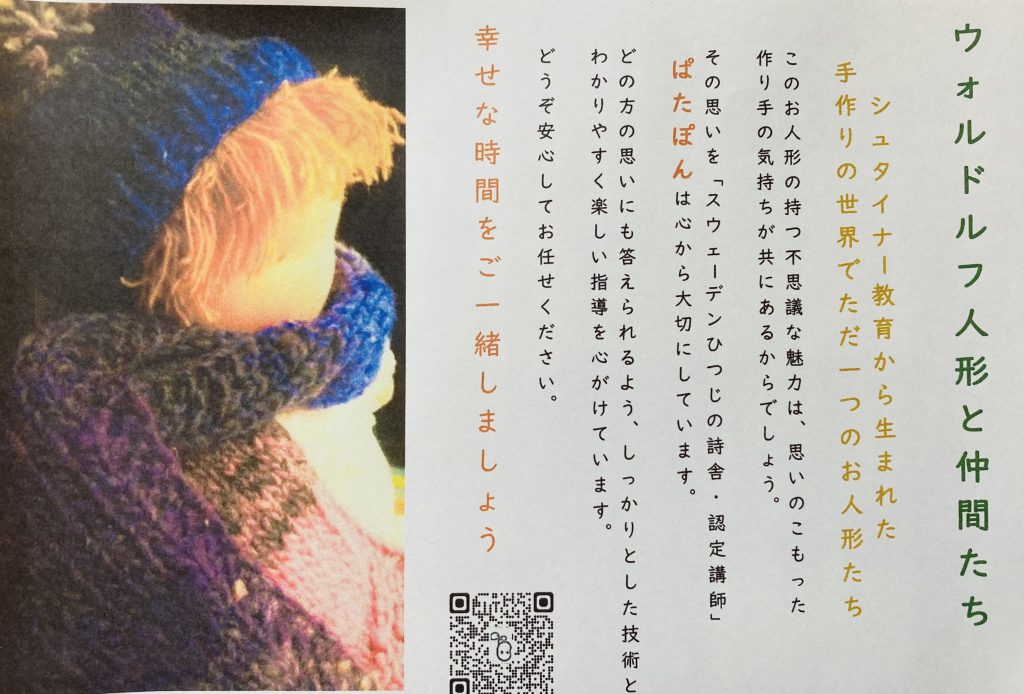 ウォルドルフ人形と仲間たち
シュタイナー教育から生まれた
手作りの世界でただ一つのお人形たち
このお人形の持つ不思議な魅力は、思いのこもった
作り手の気持ちが共にあるからでしょう。
その思いを「スウェーデンひつじの詩舎・認定講師」
ぱたぽんは心から大切にしています。
どの方の思いにも答えられるよう、しっかりとした技術と
わかりやすく楽しい指導を心がけています。
どうぞ安心してお任せください。
幸せな時間をご一緒しましょう